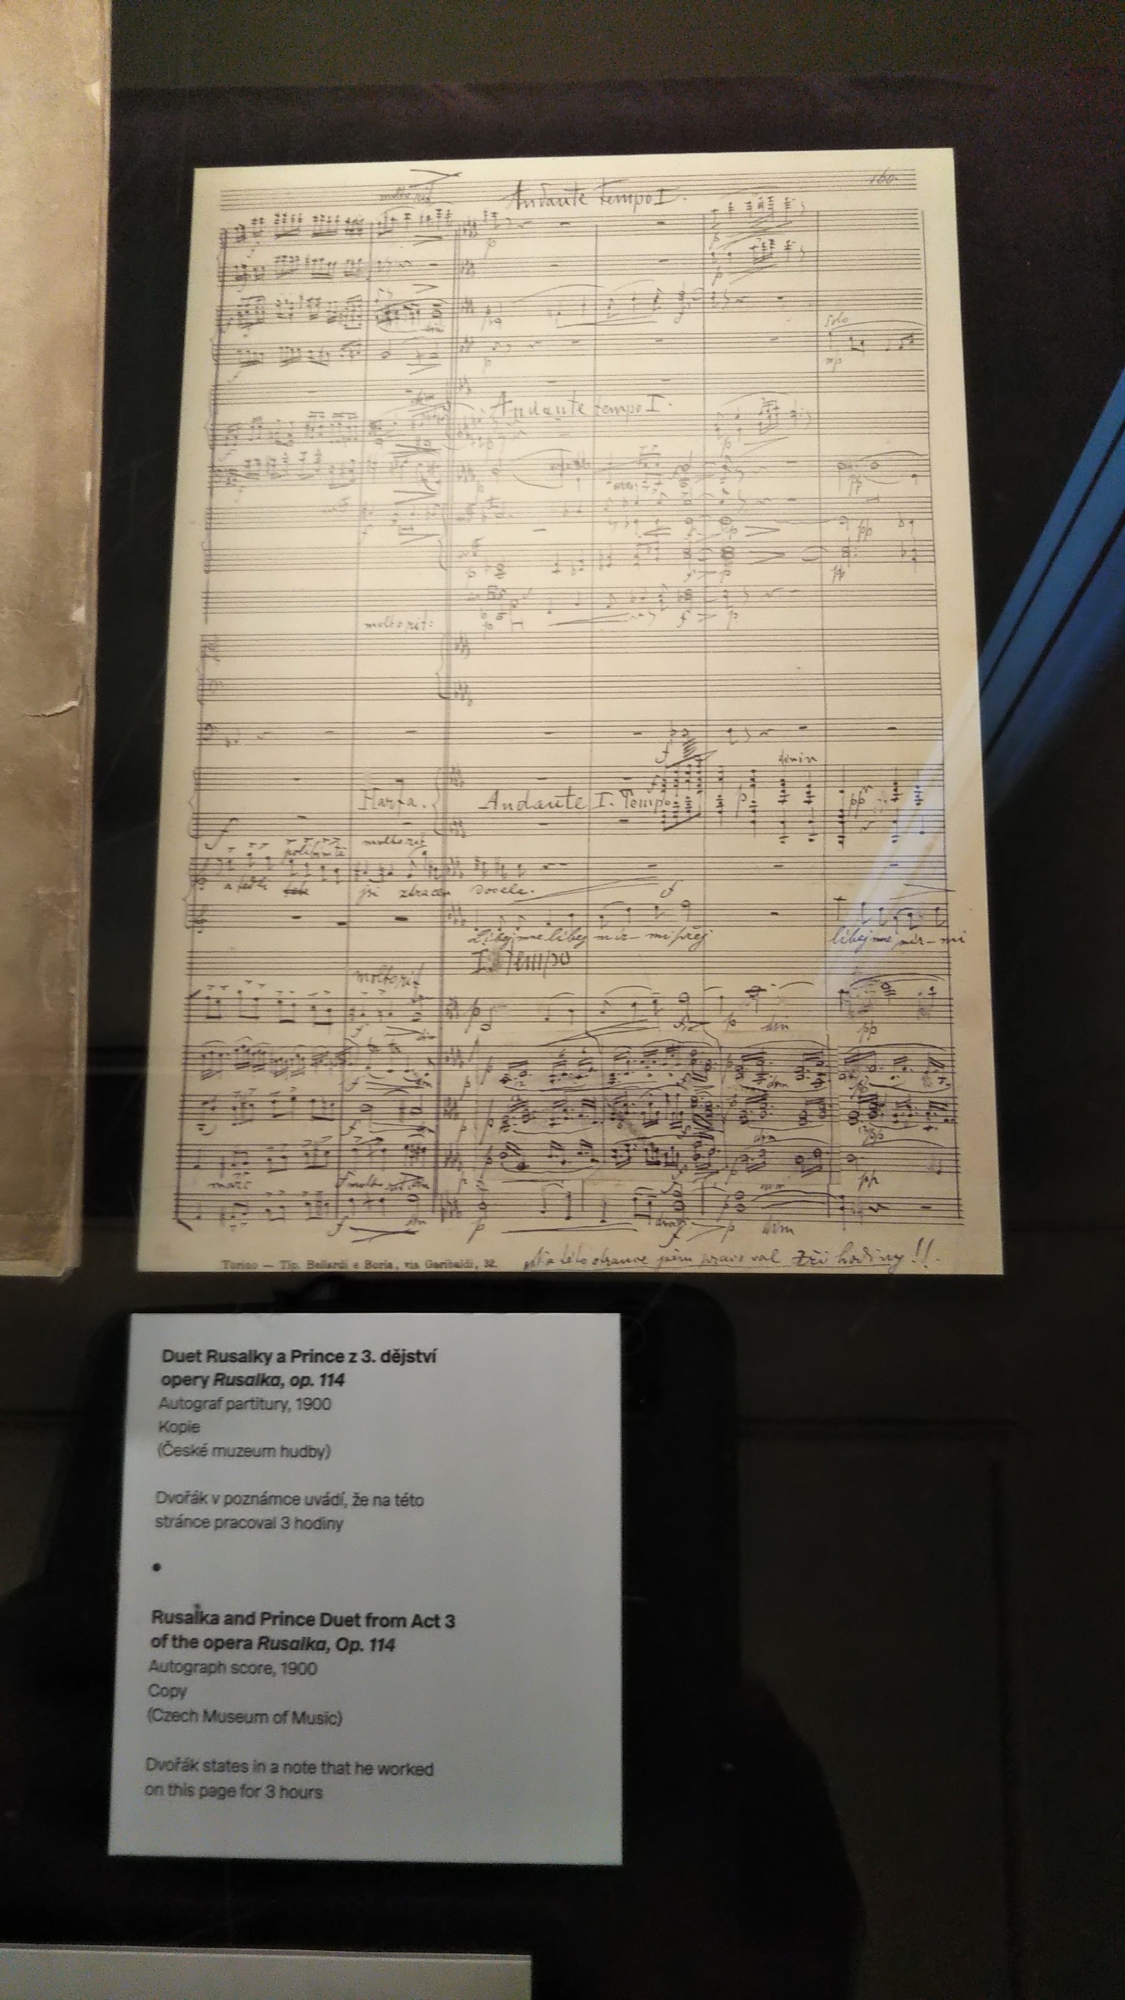 160.
molto rit.
Andante tempo I.
Solo
Andante tempo I.
molto rit:
dimin
Harfa.
Andante I. Tempo
molto rit
jsi ztracen docela.
Líbej mne líbej mír mi přej
líbej mne mír – mi
I. Tempo
molto rit
dim
pp
marc
dim
Torino — Tip. Bellardi e Boria, via Garibaldi, 32.
Na této stránce jsem pracoval tři hodiny!!
Duet Rusalky a Prince z 3. dějství
opery Rusalka, op. 114
Autograf partitury, 1900
Kopie
(České muzeum hudby)
Dvořák v poznámce uvádí, že na této
stránce pracoval 3 hodiny
•
Rusalka and Prince Duet from Act 3
of the opera Rusalka, Op. 114
Autograph score, 1900
Copy
(Czech Museum of Music)
Dvořák states in a note that he worked
on this page for 3 hours